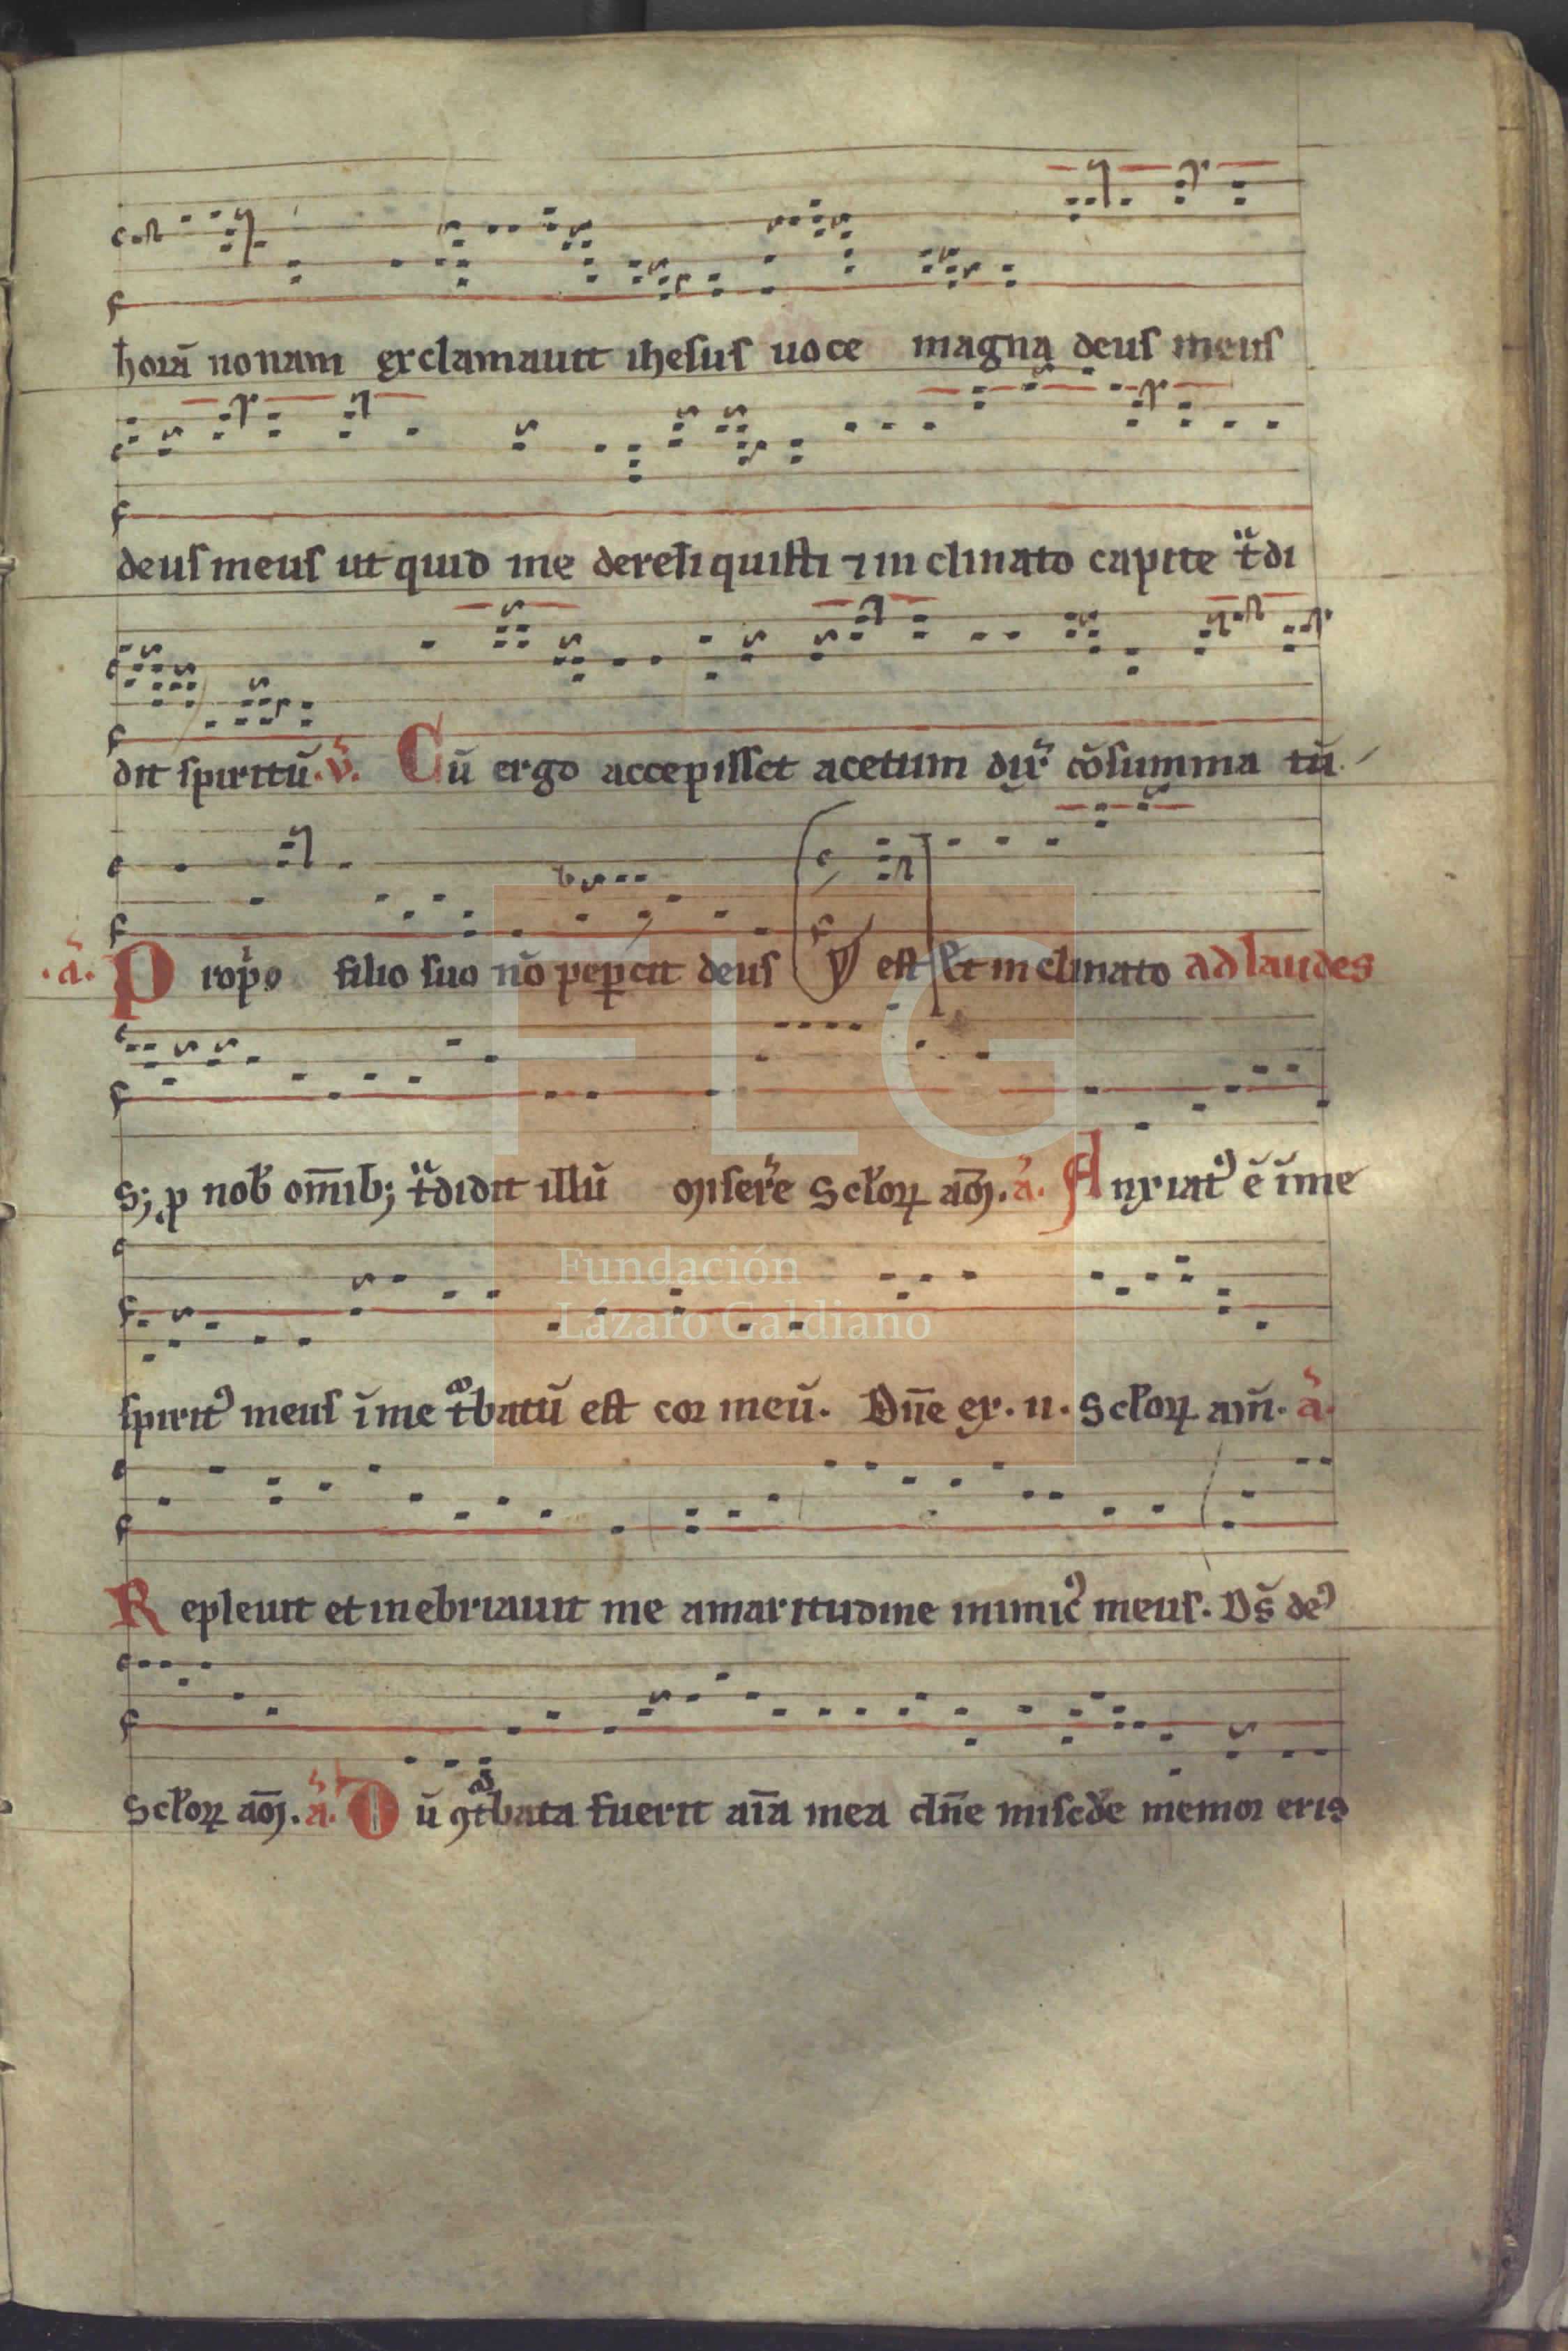 horā nonam exclamauit ihesus uoce magna deus meus
deus meus ut quid me dereliquisti ⁊ in clinato capite t̄di
dit spiritū. v̄. Cū ergo accepisset acetum dix̄ cōsumma tū
.a̾. Prop̾o filio suo nō peꝑcit deus est Et in clinato ad laudes
s; p nob̾ om̄ib; t̄didit illū Miser̾e Sc̄loꝝ am̄. a̾. Anxiat᾽ ē īme
spirit᾽ meus īme t̾batū est cor meū. Dn̄e ex. ii. Sc̄loꝝ am̄. a̾.
Repleuit et inebriauit me amaritudine inimic᾽ meus. Ds̄ de᾽
Sc̄loꝝ am̄. a̾. Dū ꝯt̾bata fuerit aīa mea dn̄e misc̄de memor eris
FLG
Fundación
Lázaro Galdiano